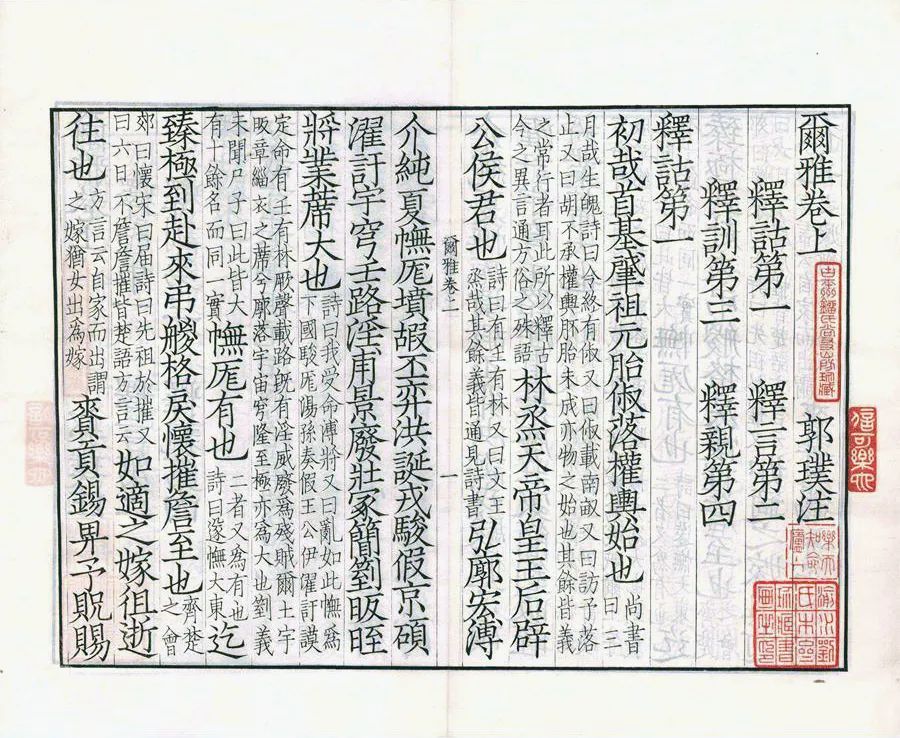 爾雅卷上　郭璞注
釋詁第一　釋言第二
釋訓第三　釋親第四
釋詁第一
初哉首基肈祖元胎俶落權輿始也尚書曰三
月哉生魄詩曰令終有俶又曰俶載南畝又曰訪予落止又曰胡不承權輿胚胎未成亦物之始也其餘皆義
之常行者耳此所以釋古今之異言通方俗之殊語林烝天帝皇王后辟
公侯君也詩曰有壬有林又曰文王烝哉其餘義皆通見詩書弘廓宏溥
爾雅卷二　一
介純夏幠厖墳嘏丕弈洪誕戎駿假京碩
濯訏宇穹壬路淫甫景廢壯冢簡箌昄晊
將業蓆大也詩曰我受命溥將又曰亂如此幠為下國駿厖湯孫奏假王公伊濯訏謨
定命有壬有林厥聲載路旣有淫威廢為殘賊爾土宇昄章緇衣之蓆兮廓落宇宙穹隆至極亦為大也箌義
未聞尸子曰此皆大有十餘名而同一實幠厖有也二者又為有也詩曰遂幠大東迄
臻極到赴來弔艐格戾懷摧詹至也齊楚之會
郊曰懷宋曰届詩曰先祖於摧又曰六日不詹詹摧皆楚語方言云如適之嫁徂逝
往也方言云自家而出謂之嫁猶女出為嫁賚貢錫畀予貺賜
信可樂也